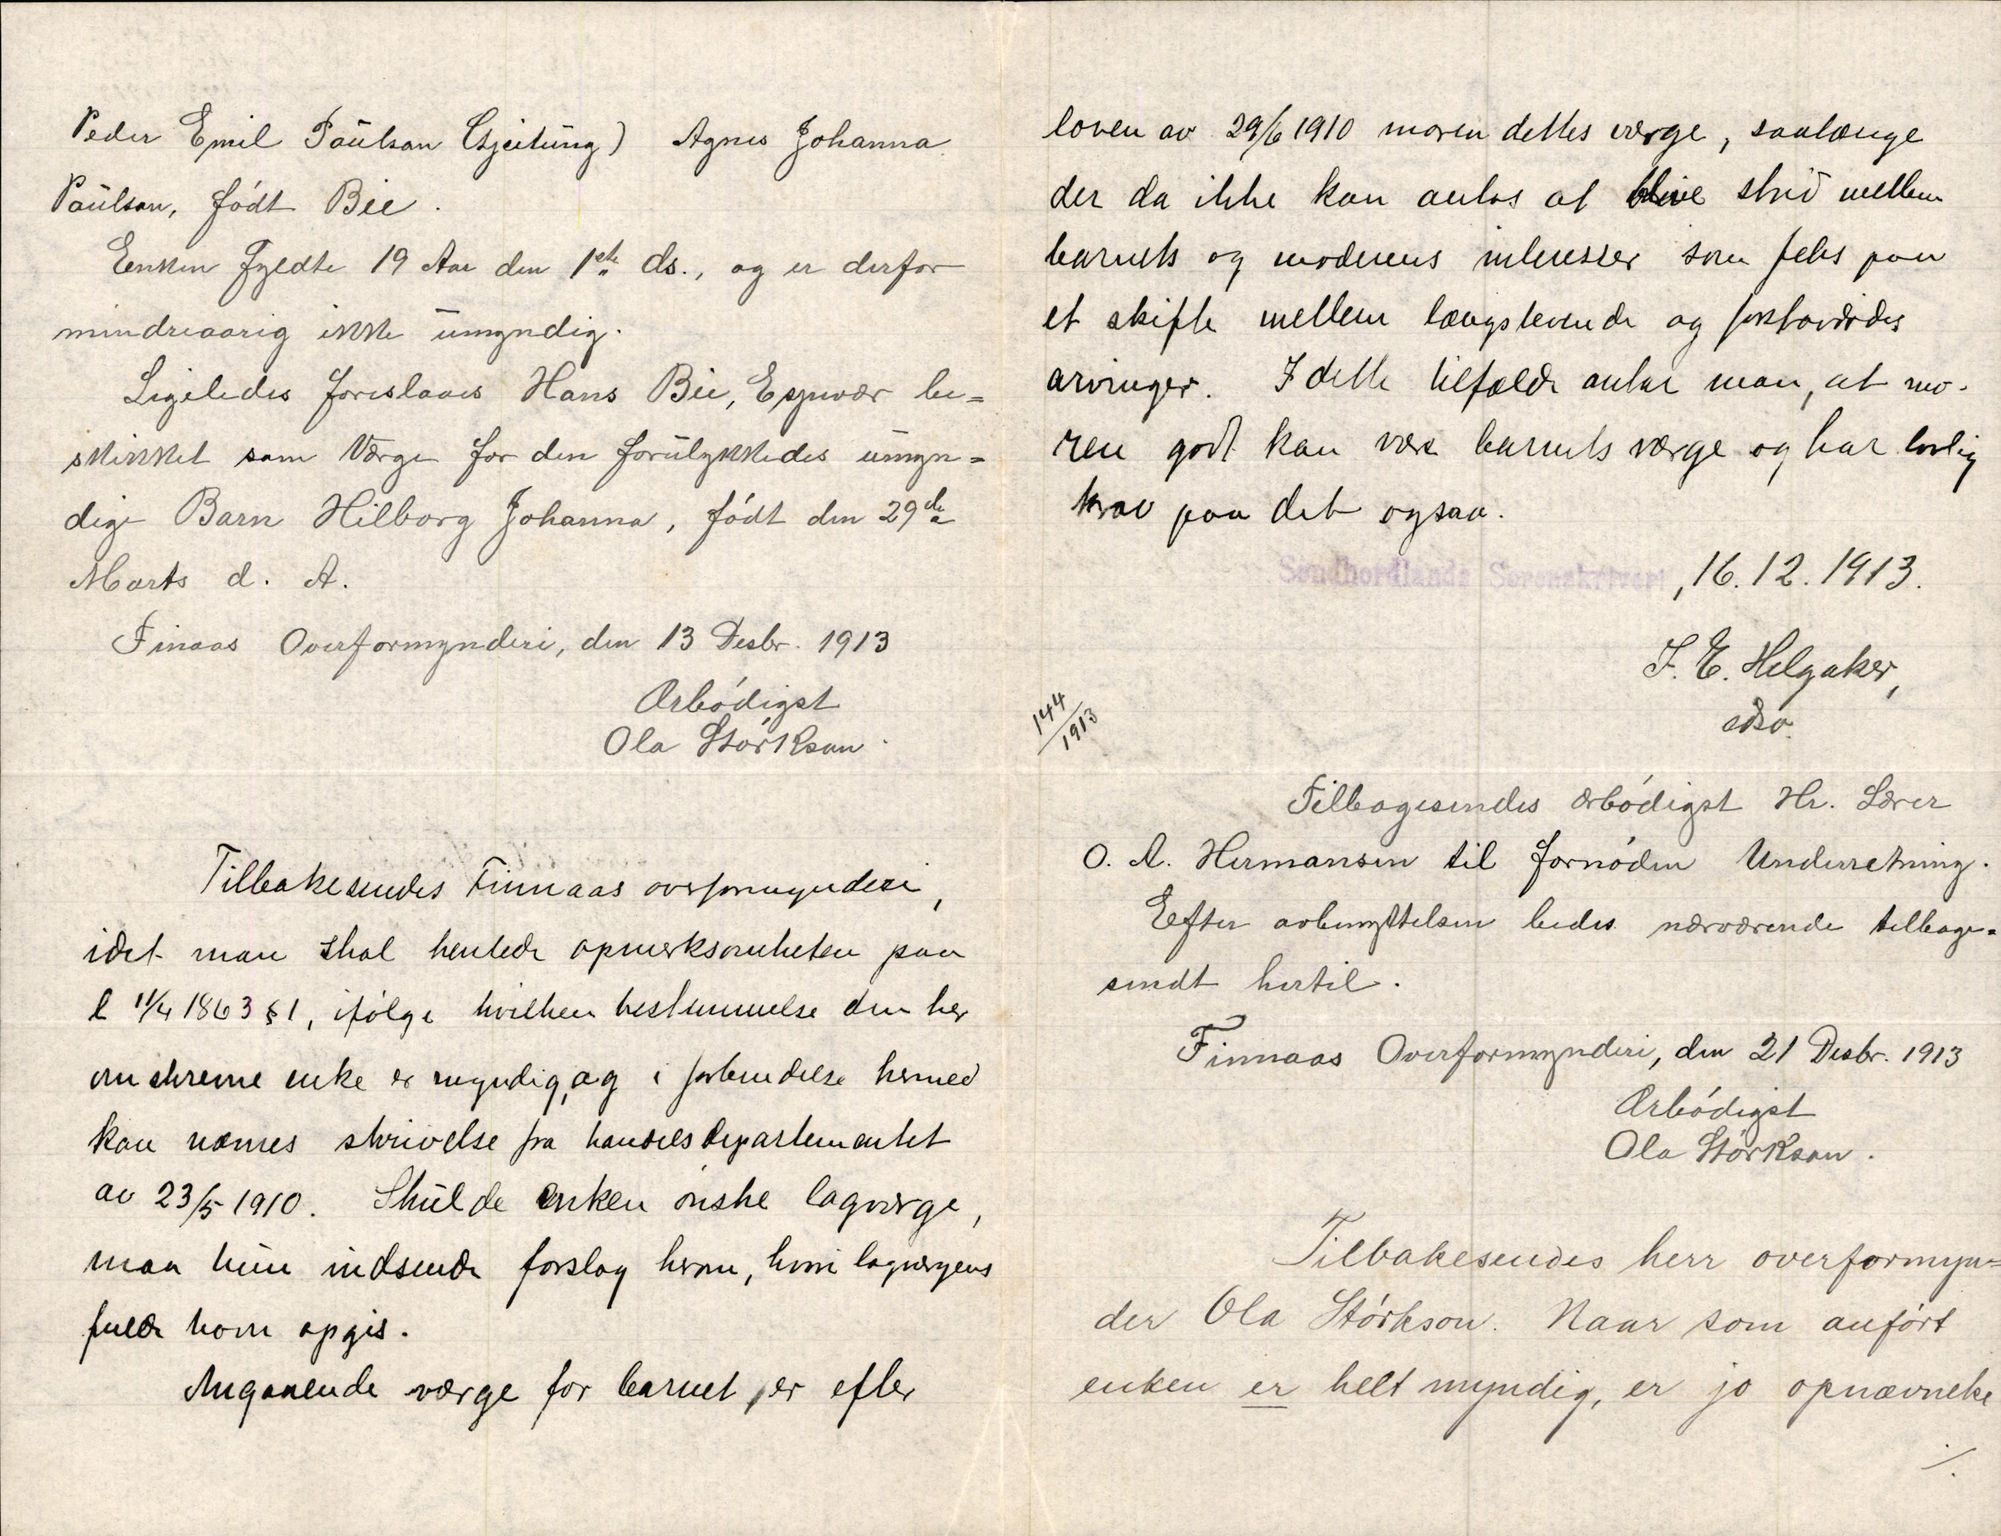 Peder Emil Paulsan (Gjeitung) Agnes Johanna
Paulsan, født Bie.
Enken fyldte 19 Aar den 1ste ds., og er derfor
mindreaarig ikke umyndig.
Ligeledes foreslaaes Hans Bie, Espevær be=
skikket som Værge for den forulykkedes umyn=
dige Barn Hilborg Johanna, født den 29de
Marts d. A.
Finaas Overformynderi, den 13 Desbr. 1913
Ærbødigst
Ola Størksan.
Tilbakesendes Finnaas overformynderi,
idet man skal henlede opmerksomheten paa
l 11/4 1863 § 1, ifølge hvilken bestemmelse den her
omskrevne enke er myndig, og i forbindelse hermed
kan nævnes skrivelse fra handelsdepartementet
av 23/5 1910. Skulde enken ønske lagværge,
maa hun indsende forslag herom, hvori lagværgens
fulde navn opgis.
Angaaende værge for barnet, er efter
loven av 29/6 1910 moren dettes værge, saalænge
der da ikke kan antas at blive strid mellem
barnets og moderens interesser som f.eks paa
et skifte mellem længstlevende og
arvinger. I dette tilfælde antar man, at mo-
ren godt kan være barnets værge og har lovlig
krav paa det ogsaa.
Søndhordlands Sorenskriveri, 16.12.1913.
J. E. Helgaker,
edsv.
144/1913
Tilbagesendes ærbødigst Hr. Lærer
O. A. Hermansen til fornøden Underretning.
Efter avbenyttelsen bedes nærværende tilbage=
sendt hertil.
Finnaas Overformynderi, den 21 Desbr. 1913
Ærbødigst
Ola Størksan.
Tilbakesendes herr overformyn=
der Ola Størkson. Naar som anført
enken er helt myndig, er jo opnævnelse
./.